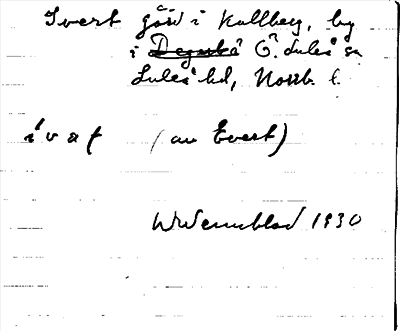 Ivert gård i Kallberg, by
i ~~Degerbä~~ Ö. Luleå sn
Luleå hd, Norrb. l.
ívaṭ (av Evert)
W Wennblad 1930